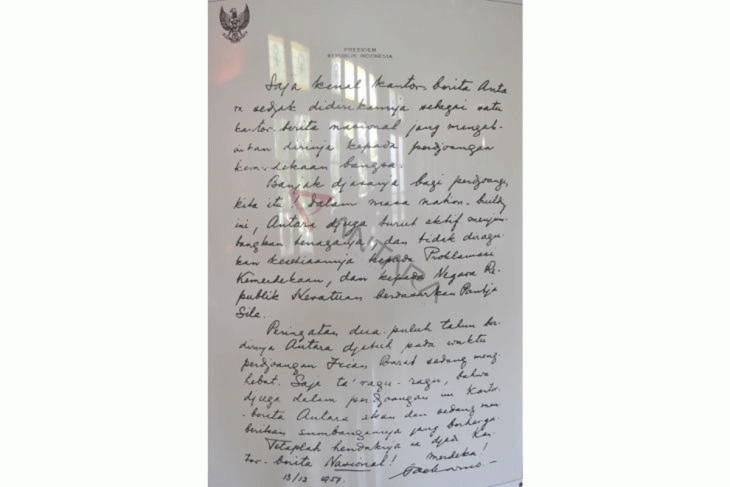 PRESIDEN
REPUBLIK INDONESIA
Saja kenal kantor berita Anta
ra sedjak didirikannja sebagai satu
kantor-berita nasional jang mengab-
dikan dirinja kepada perdjoangan
kemerdekaan bangsa.
Banjak djasanja bagi perdjoangan
kita itu! Dalam masa nation-building
ini, Antara djuga turut aktif menjum-
bangkan tenaganja, dan tidak diragu-
kan kesetiaannja kepada Proklamasi
Kemerdekaan, dan kepada Negara Re-
publik Kesatuan berdasarkan Pantja
Sila.
Peringatan dua puluh tahun ber-
dirinja Antara djatuh pada waktu
perdjoangan Irian Barat sedang meng-
hebat. Saja ta' ragu-ragu, bahwa
djuga dalam perdjoangan ini Kantor
-berita Antara akan dan sedang mem-
berikan sumbangannja jang berharga.
Tetaplah hendaknja ia djadi Kan-
tor-berita Nasional! Merdeka!
13/12 1957. Soekarno
ANTARA